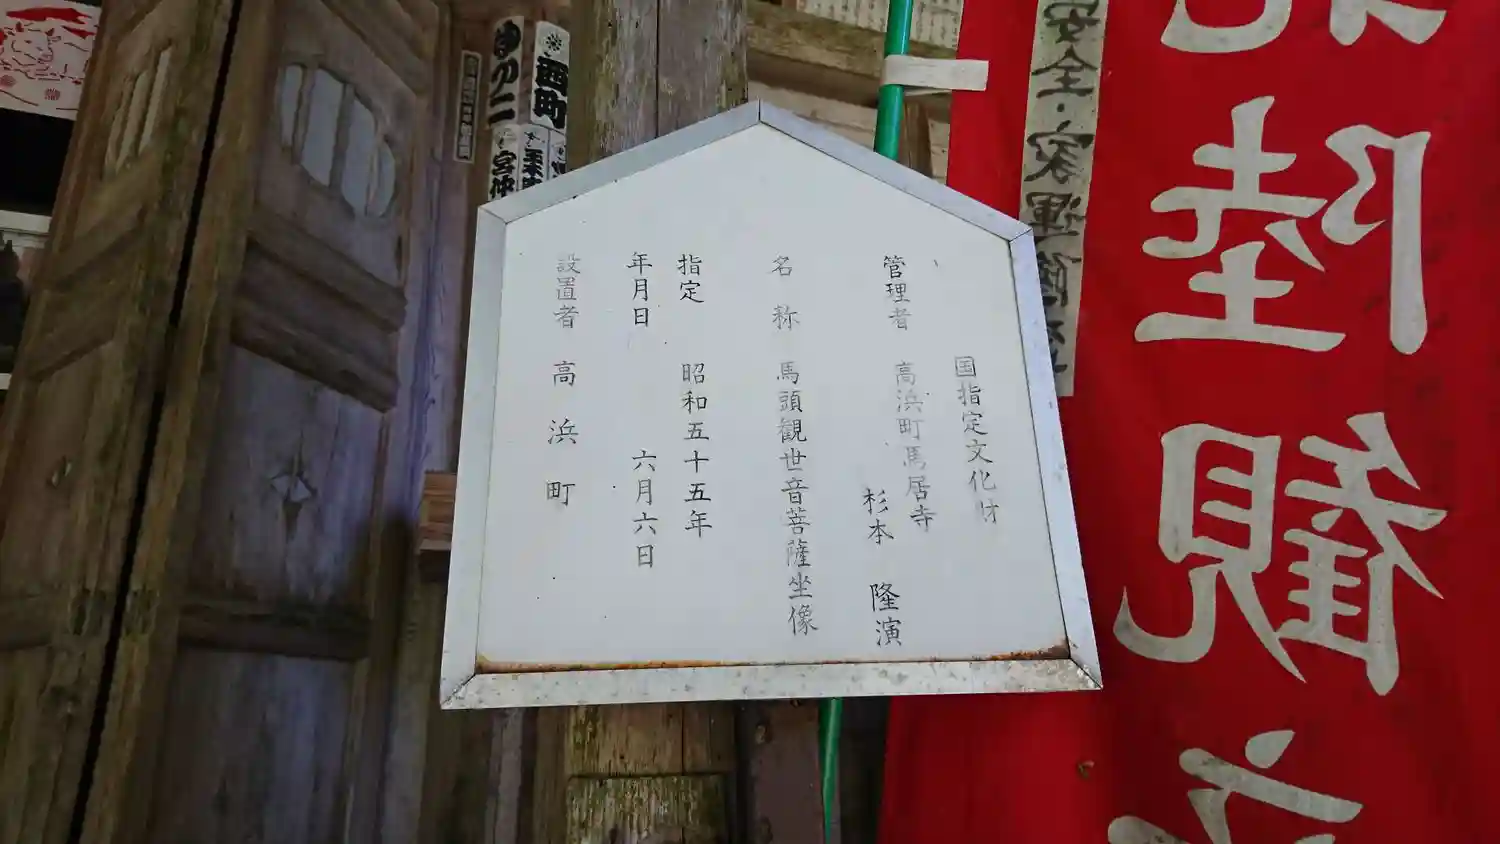 国指定文化財
管理者 高浜町馬居寺
杉本 隆演
名称 馬頭観世音菩薩坐像
指定 昭和五十五年
年月日 六月六日
設置者 高浜町
陸観
安全・家運隆
西町